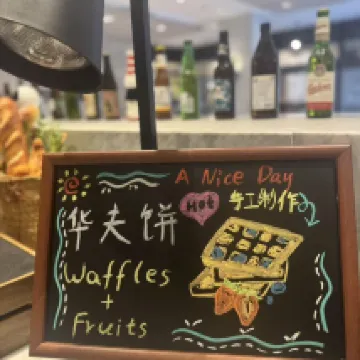 A Nice Day
Hot
手工制作
华夫饼
Waffles
+
Fruits